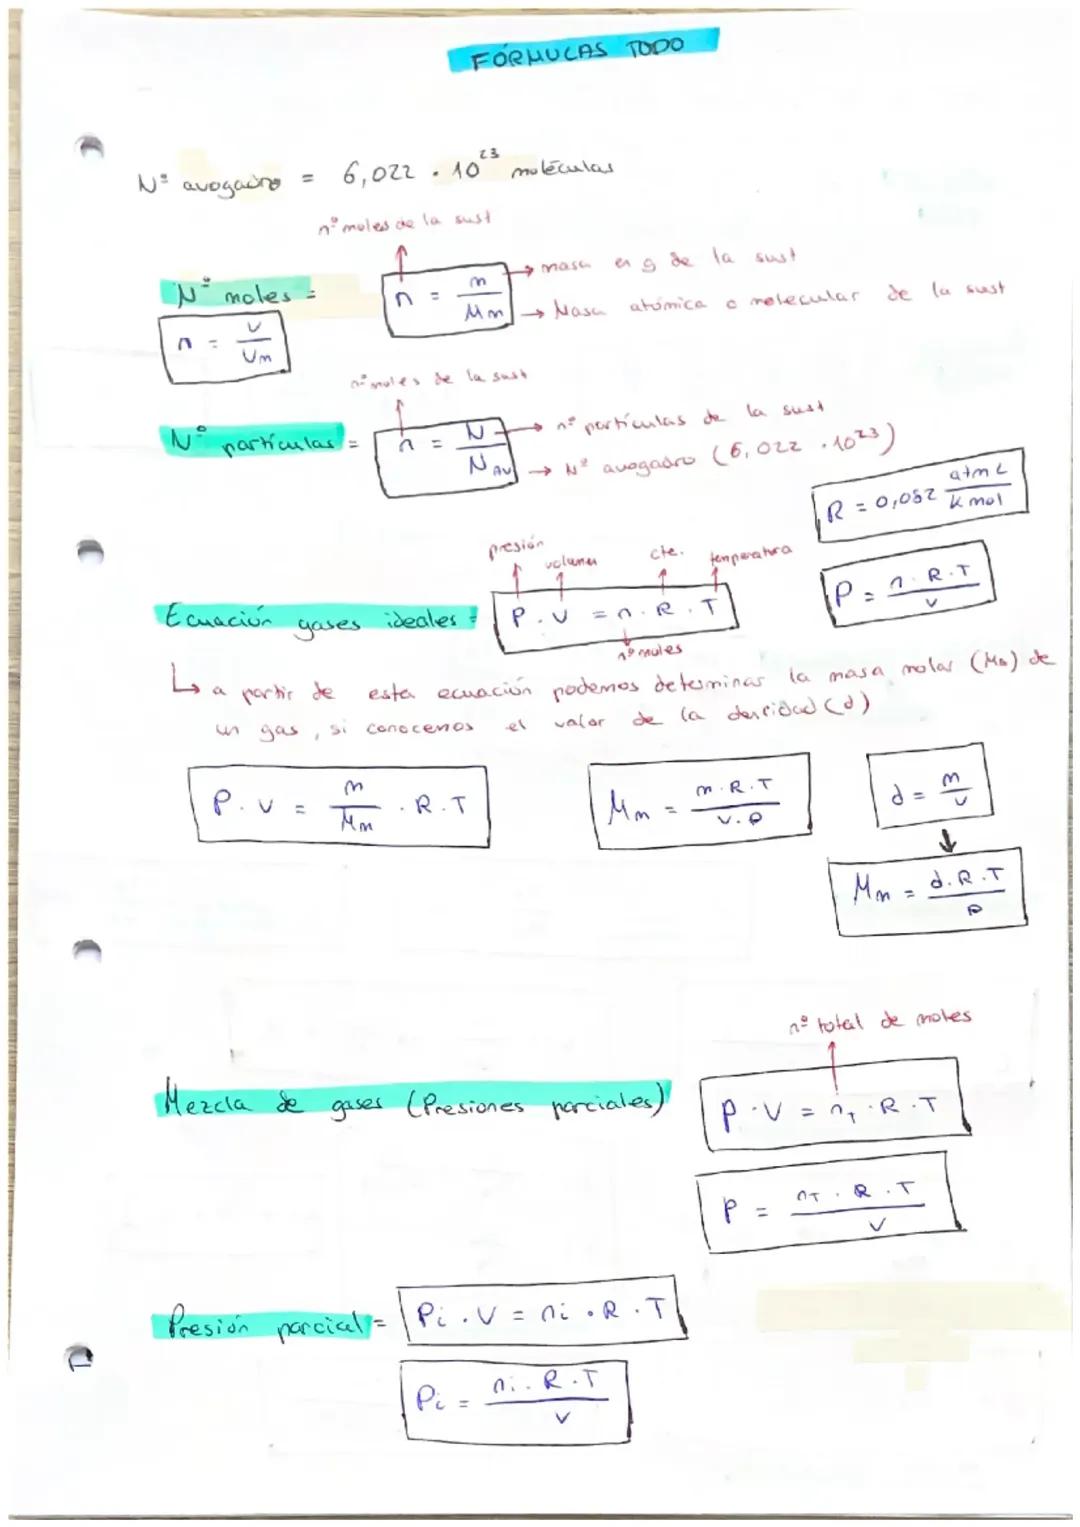 FÓRMULAS TODO
Nº avogadro = 6,022 · 10²³ moléculas
nº moles de la sust
Nº moles =
n = m / Mm
masa en g de la sust
Masa atómica o molecular de la sust
n = V / Vm
nº moles de la sust
Nº partículas =
n = N / N AV
nº partículas de la sust
Nº avogadro (6,022 · 10²³)
R = 0,082 atm L / K mol
presión volumen cte. temperatura
Ecuación gases ideales =
P · V = n · R · T
P = n · R · T / V
nº moles
↳ a partir de esta ecuación podemos determinar la masa molar (Mm) de
un gas, si conocemos el valor de la densidad (d)
P · V = m / Mm · R · T
Mm = m · R · T / V · P
d = m / V
Mm = d · R · T / P
nº total de moles
Mezcla de gases (Presiones parciales)
P · V = nT · R · T
P = nT · R · T / V
Presión parcial =
Pi · V = ni · R · T
Pi = ni · R · T / V